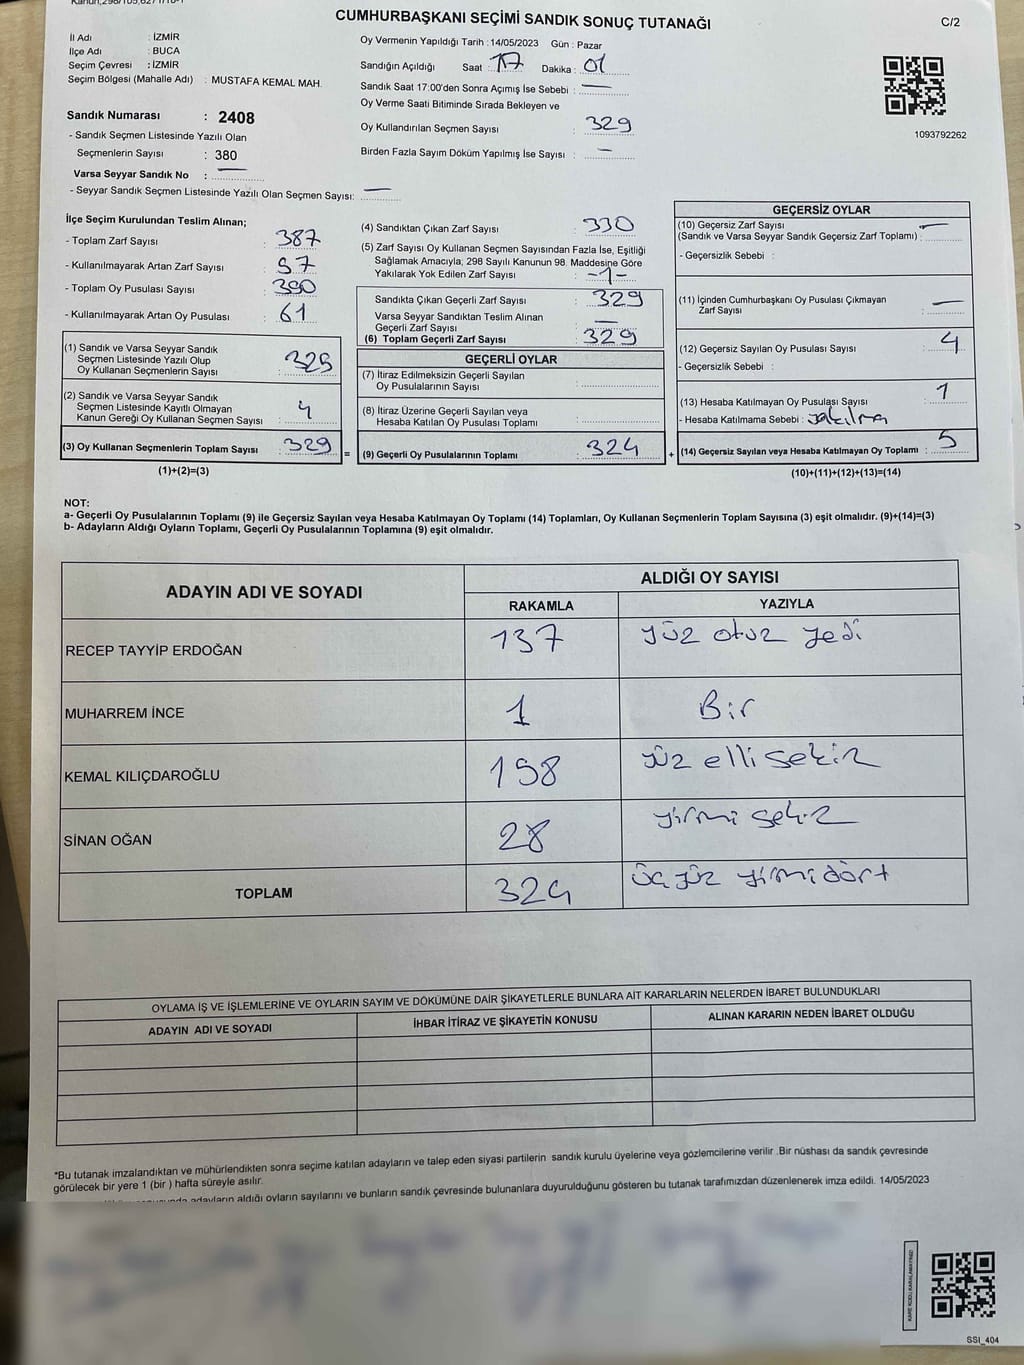 CUMHURBAŞKANI SEÇİMİ SANDIK SONUÇ TUTANAĞI
C/2
İl Adı : İZMİR
İlçe Adı : BUCA
Seçim Çevresi : İZMİR
Seçim Bölgesi (Mahalle Adı) : MUSTAFA KEMAL MAH.
Sandık Numarası : 2408
- Sandık Seçmen Listesinde Yazılı Olan
Seçmenlerin Sayısı : 380
Varsa Seyyar Sandık No : —
- Seyyar Sandık Seçmen Listesinde Yazılı Olan Seçmen Sayısı: —
Oy Vermenin Yapıldığı Tarih : 14/05/2023 Gün : Pazar
Sandığın Açıldığı Saat : 17 Dakika : 01
Sandık Saat 17:00'den Sonra Açımış İse Sebebi : —
Oy Verme Saati Bitiminde Sırada Bekleyen ve
Oy Kullandırılan Seçmen Sayısı : 329
Birden Fazla Sayım Döküm Yapılmış İse Sayısı : —
1093792262
İlçe Seçim Kurulundan Teslim Alınan;
- Toplam Zarf Sayısı : 387
- Kullanılmayarak Artan Zarf Sayısı : 57
- Toplam Oy Pusulası Sayısı : 390
- Kullanılmayarak Artan Oy Pusulası : 61
(1) Sandık ve Varsa Seyyar Sandık
Seçmen Listesinde Yazılı Olup
Oy Kullanan Seçmenlerin Sayısı : 325
(2) Sandık ve Varsa Seyyar Sandık
Seçmen Listesinde Kayıtlı Olmayan
Kanun Gereği Oy Kullanan Seçmen Sayısı : 4
(3) Oy Kullanan Seçmenlerin Toplam Sayısı : 329 =
(1)+(2)=(3)
(4) Sandıktan Çıkan Zarf Sayısı : 330
(5) Zarf Sayısı Oy Kullanan Seçmen Sayısından Fazla İse, Eşitliği
Sağlamak Amacıyla; 298 Sayılı Kanunun 98. Maddesine Göre
Yakılarak Yok Edilen Zarf Sayısı : -1-
Sandıkta Çıkan Geçerli Zarf Sayısı : 329
Varsa Seyyar Sandıktan Teslim Alınan
Geçerli Zarf Sayısı : —
(6) Toplam Geçerli Zarf Sayısı : 329
GEÇERLİ OYLAR
(7) İtiraz Edilmeksizin Geçerli Sayılan
Oy Pusulalarının Sayısı :
(8) İtiraz Üzerine Geçerli Sayılan veya
Hesaba Katılan Oy Pusulası Toplamı :
(9) Geçerli Oy Pusulalarının Toplamı : 324 +
GEÇERSİZ OYLAR
(10) Geçersiz Zarf Sayısı : —
(Sandık ve Varsa Seyyar Sandık Geçersiz Zarf Toplamı) :
- Geçersizlik Sebebi :
(11) İçinden Cumhurbaşkanı Oy Pusulası Çıkmayan
Zarf Sayısı : —
(12) Geçersiz Sayılan Oy Pusulası Sayısı : 4
- Geçersizlik Sebebi :
(13) Hesaba Katılmayan Oy Pusulası Sayısı : 1
- Hesaba Katılmama Sebebi : yakılma
(14) Geçersiz Sayılan veya Hesaba Katılmayan Oy Toplamı : 5
(10)+(11)+(12)+(13)=(14)
NOT:
a- Geçerli Oy Pusulalarının Toplamı (9) ile Geçersiz Sayılan veya Hesaba Katılmayan Oy Toplamı (14) Toplamları, Oy Kullanan Seçmenlerin Toplam Sayısına (3) eşit olmalıdır. (9)+(14)=(3)
b- Adayların Aldığı Oyların Toplamı, Geçerli Oy Pusulalarının Toplamına (9) eşit olmalıdır.
ADAYIN ADI VE SOYADI ALDIĞI OY SAYISI
RAKAMLA YAZIYLA
RECEP TAYYİP ERDOĞAN 137 yüz otuz yedi
MUHARREM İNCE 1 Bir
KEMAL KILIÇDAROĞLU 158 yüz elli sekiz
SİNAN OĞAN 28 yirmi sekiz
TOPLAM 324 üçyüz yirmidört
OYLAMA İŞ VE İŞLEMLERİNE VE OYLARIN SAYIM VE DÖKÜMÜNE DAİR ŞİKAYETLERLE BUNLARA AİT KARARLARIN NELERDEN İBARET BULUNDUKLARI
ADAYIN ADI VE SOYADI İHBAR İTİRAZ VE ŞİKAYETİN KONUSU ALINAN KARARIN NEDEN İBARET OLDUĞU
*Bu tutanak imzalandıktan ve mühürlendikten sonra seçime katılan adayların ve talep eden siyasi partilerin sandık kurulu üyelerine veya gözlemcilerine verilir .Bir nüshası da sandık çevresinde
görülecek bir yere 1 (bir ) hafta süreyle asılır.
adayların aldığı oyların sayılarını ve bunların sandık çevresinde bulunanlara duyurulduğunu gösteren bu tutanak tarafımızdan düzenlenerek imza edildi. 14/05/2023
KARE KODU KARALAMAYINIZ!
SSI_404